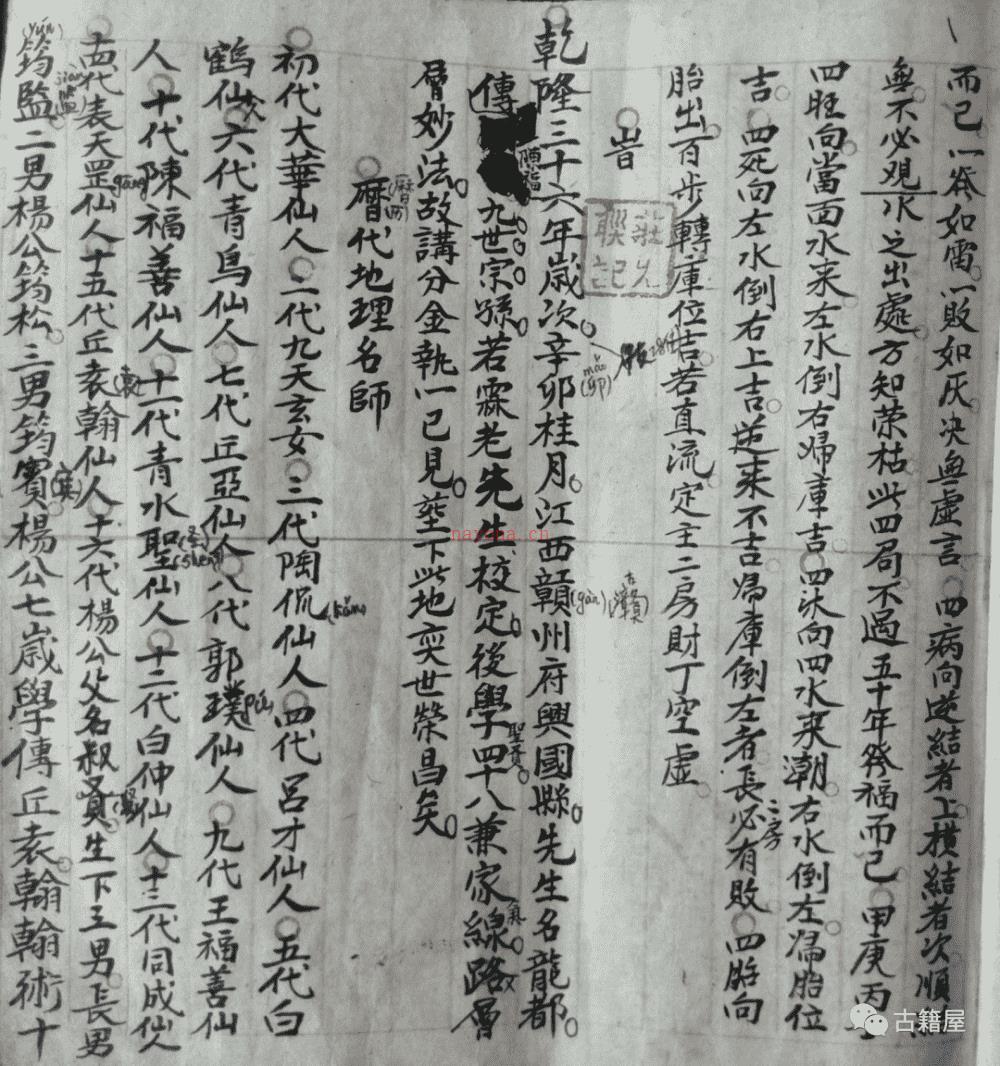 而已一發如雷一敗如灰决無虚言 四病向逆結者上横結者次順
無不必观水之出處方知荣枯此四局不過五十年發福而已 甲庚丙
四旺向當面水来左水倒右歸庫吉 四沐向四水来潮右水倒左歸胎位
吉 四死向左水倒右上吉逆来不吉歸庫倒左者長二房必有敗 四胎向
胎出百步轉庫位吉若直流定主二房財丁空虚
乾隆三十六年歳次辛卯(mǎo)(卯)桂月江西贛(gàn)州府興國縣先生名龍都
傳 九世宗孫若霖老先生校定後學四十八兼家線路層
層妙法故講分金執一已見塟下此地奕世榮昌矣
曆代地理名師
初代大華仙人 二代九天玄女 三代陶侃(kǎn)仙人 四代呂才仙人 五代白
鶴仙人 六代青鳥仙人 七代丘亞仙人 八代郭璞(pú)仙人 九代王福善仙
人 十代陳福善仙人 十一代青水聖仙人 十二代白仲仙人 十三代同成仙人
十四代袁天罡(gāng)仙人 十五代丘袁翰仙人 十六代楊公父名叔賢生下三男長男
筠(yún)監(jiàn) 二男楊公筠松 三男筠賓 楊公七歳學傳丘袁翰翰術十
古籍屋